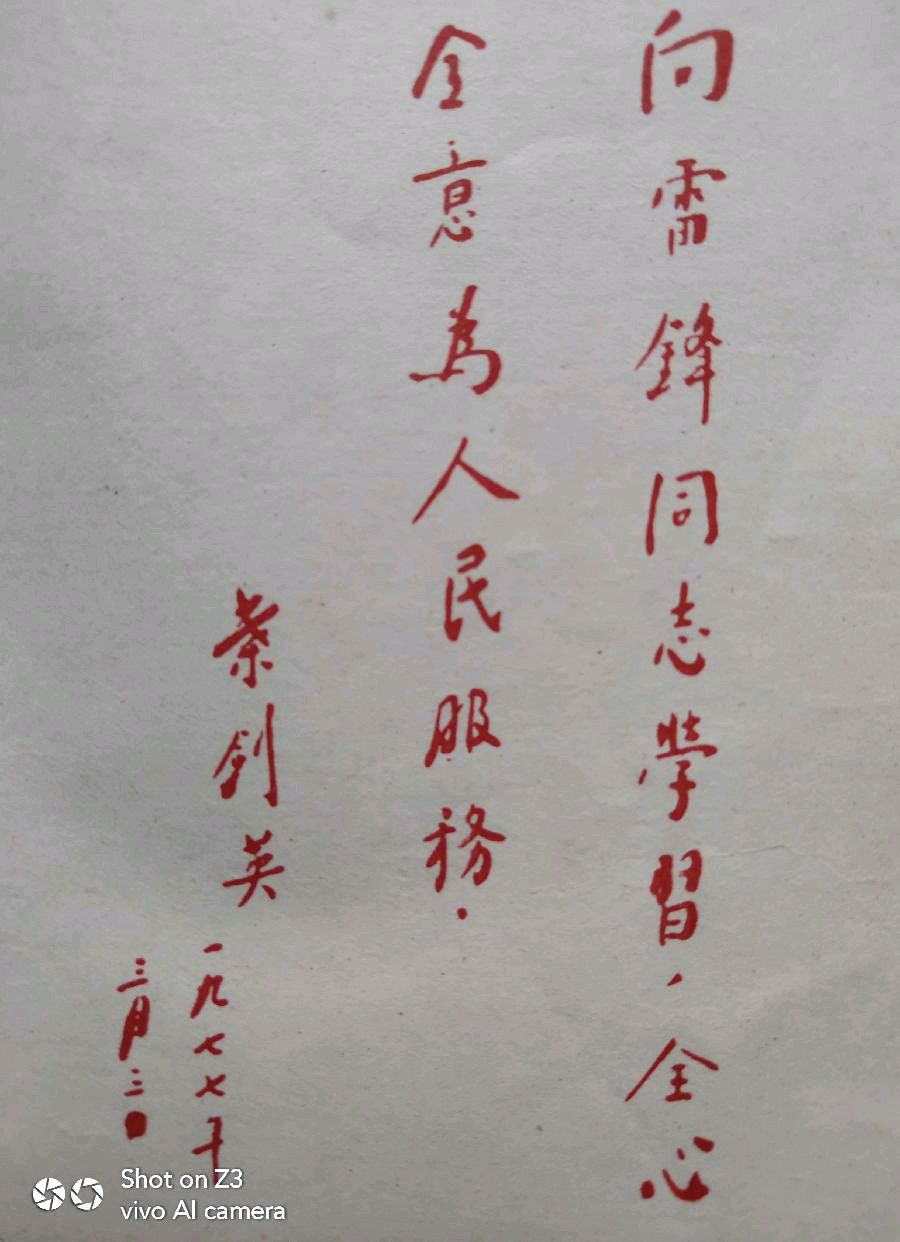 向雷鋒同志學習，全心
全意為人民服務.
葉劍英
一九七七年
三月三日
Shot on Z3
vivo AI camera